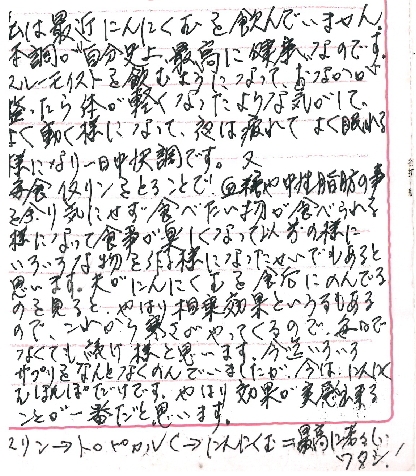 は最近にんにくむを飲んでいません。
不調が自分史上最高に健康なのです。
を飲むようになって、おなかが
たら体が軽くなったような気がして、
よく動く様になって、夜は疲れてよく眠れる
様になり一日中快調です。又
毎食後リンをとることで、血糖や中性脂肪の事
を余り気にせず食べたい物が食べられる
様になって食事が楽しくなって以前の様に
いろいろな物を作る様になったせいでもあると
思います。夫がにんにくむを食后にのんでる
のを見ると、やはり相乗効果というのもある
ので、これから寒さがやってくるので、毎日で
なくても続け様と思います。今迄いろいろ
サプリをなんとなくのんでいましたが、今は、にんにく
むほんぽだけです。やはり効果が実感出来る
ことが一番だと思います。
リン→トロ →にんにくむ=最高に若々しい
ワタシ!